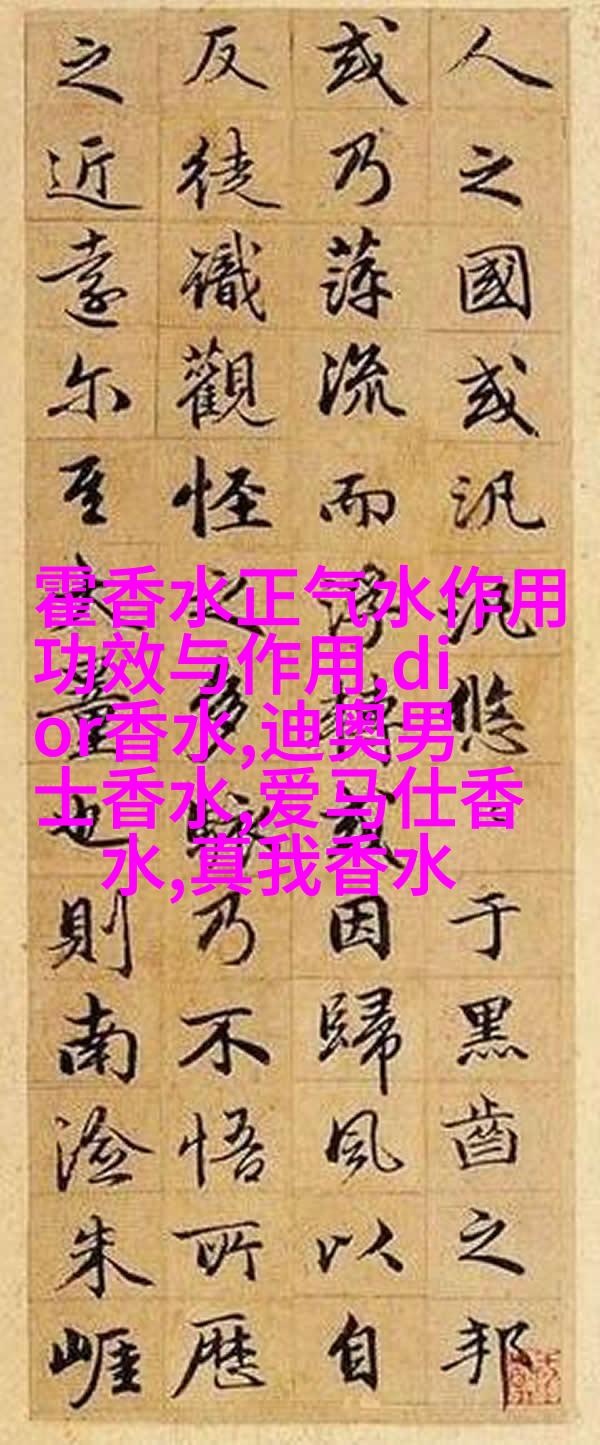 人之國或汎汎悠于黑齒之邦
或乃萍流而浮轉或因歸風以自
反徒識觀怪之多駭乃不悟所歷
之近遠尔至大量也則南澰朱崖
霍香水正气水作用
功效与作用,di
or香水,迪奥男
士香水,爱马仕香
水,真我香水